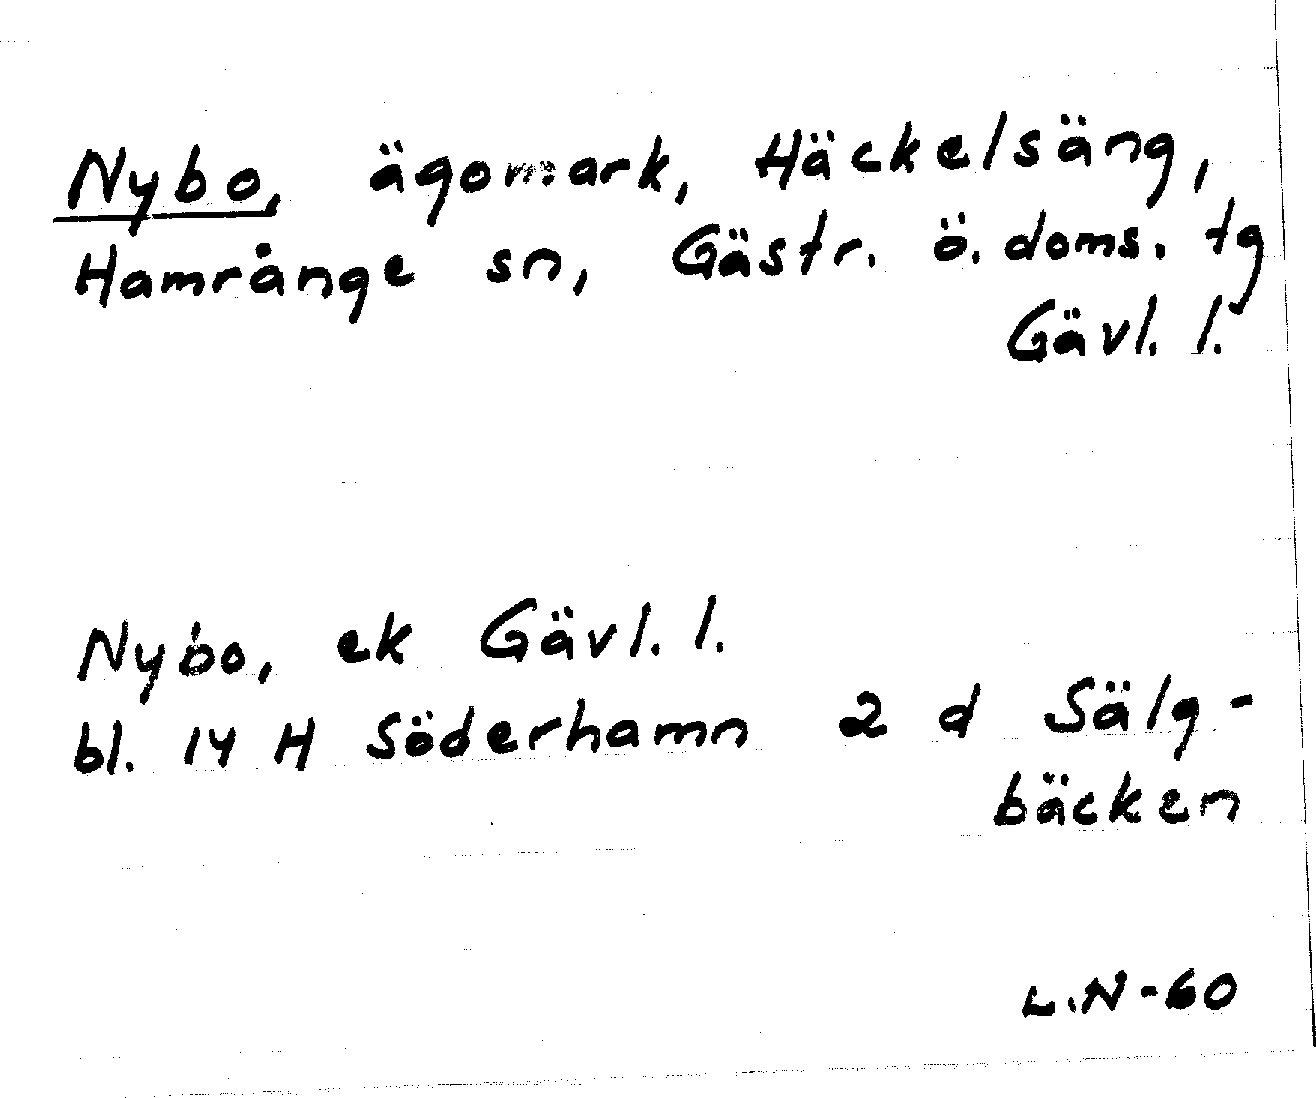 Nybo, ägomark, Häckelsäng,
Hamrånge sn, Gästr. ö. doms. tg
Gävl. l.
Nybo, ek Gävl. l.
bl. 14 H Söderhamn 2 d Sälg-
bäcken
L.N-60